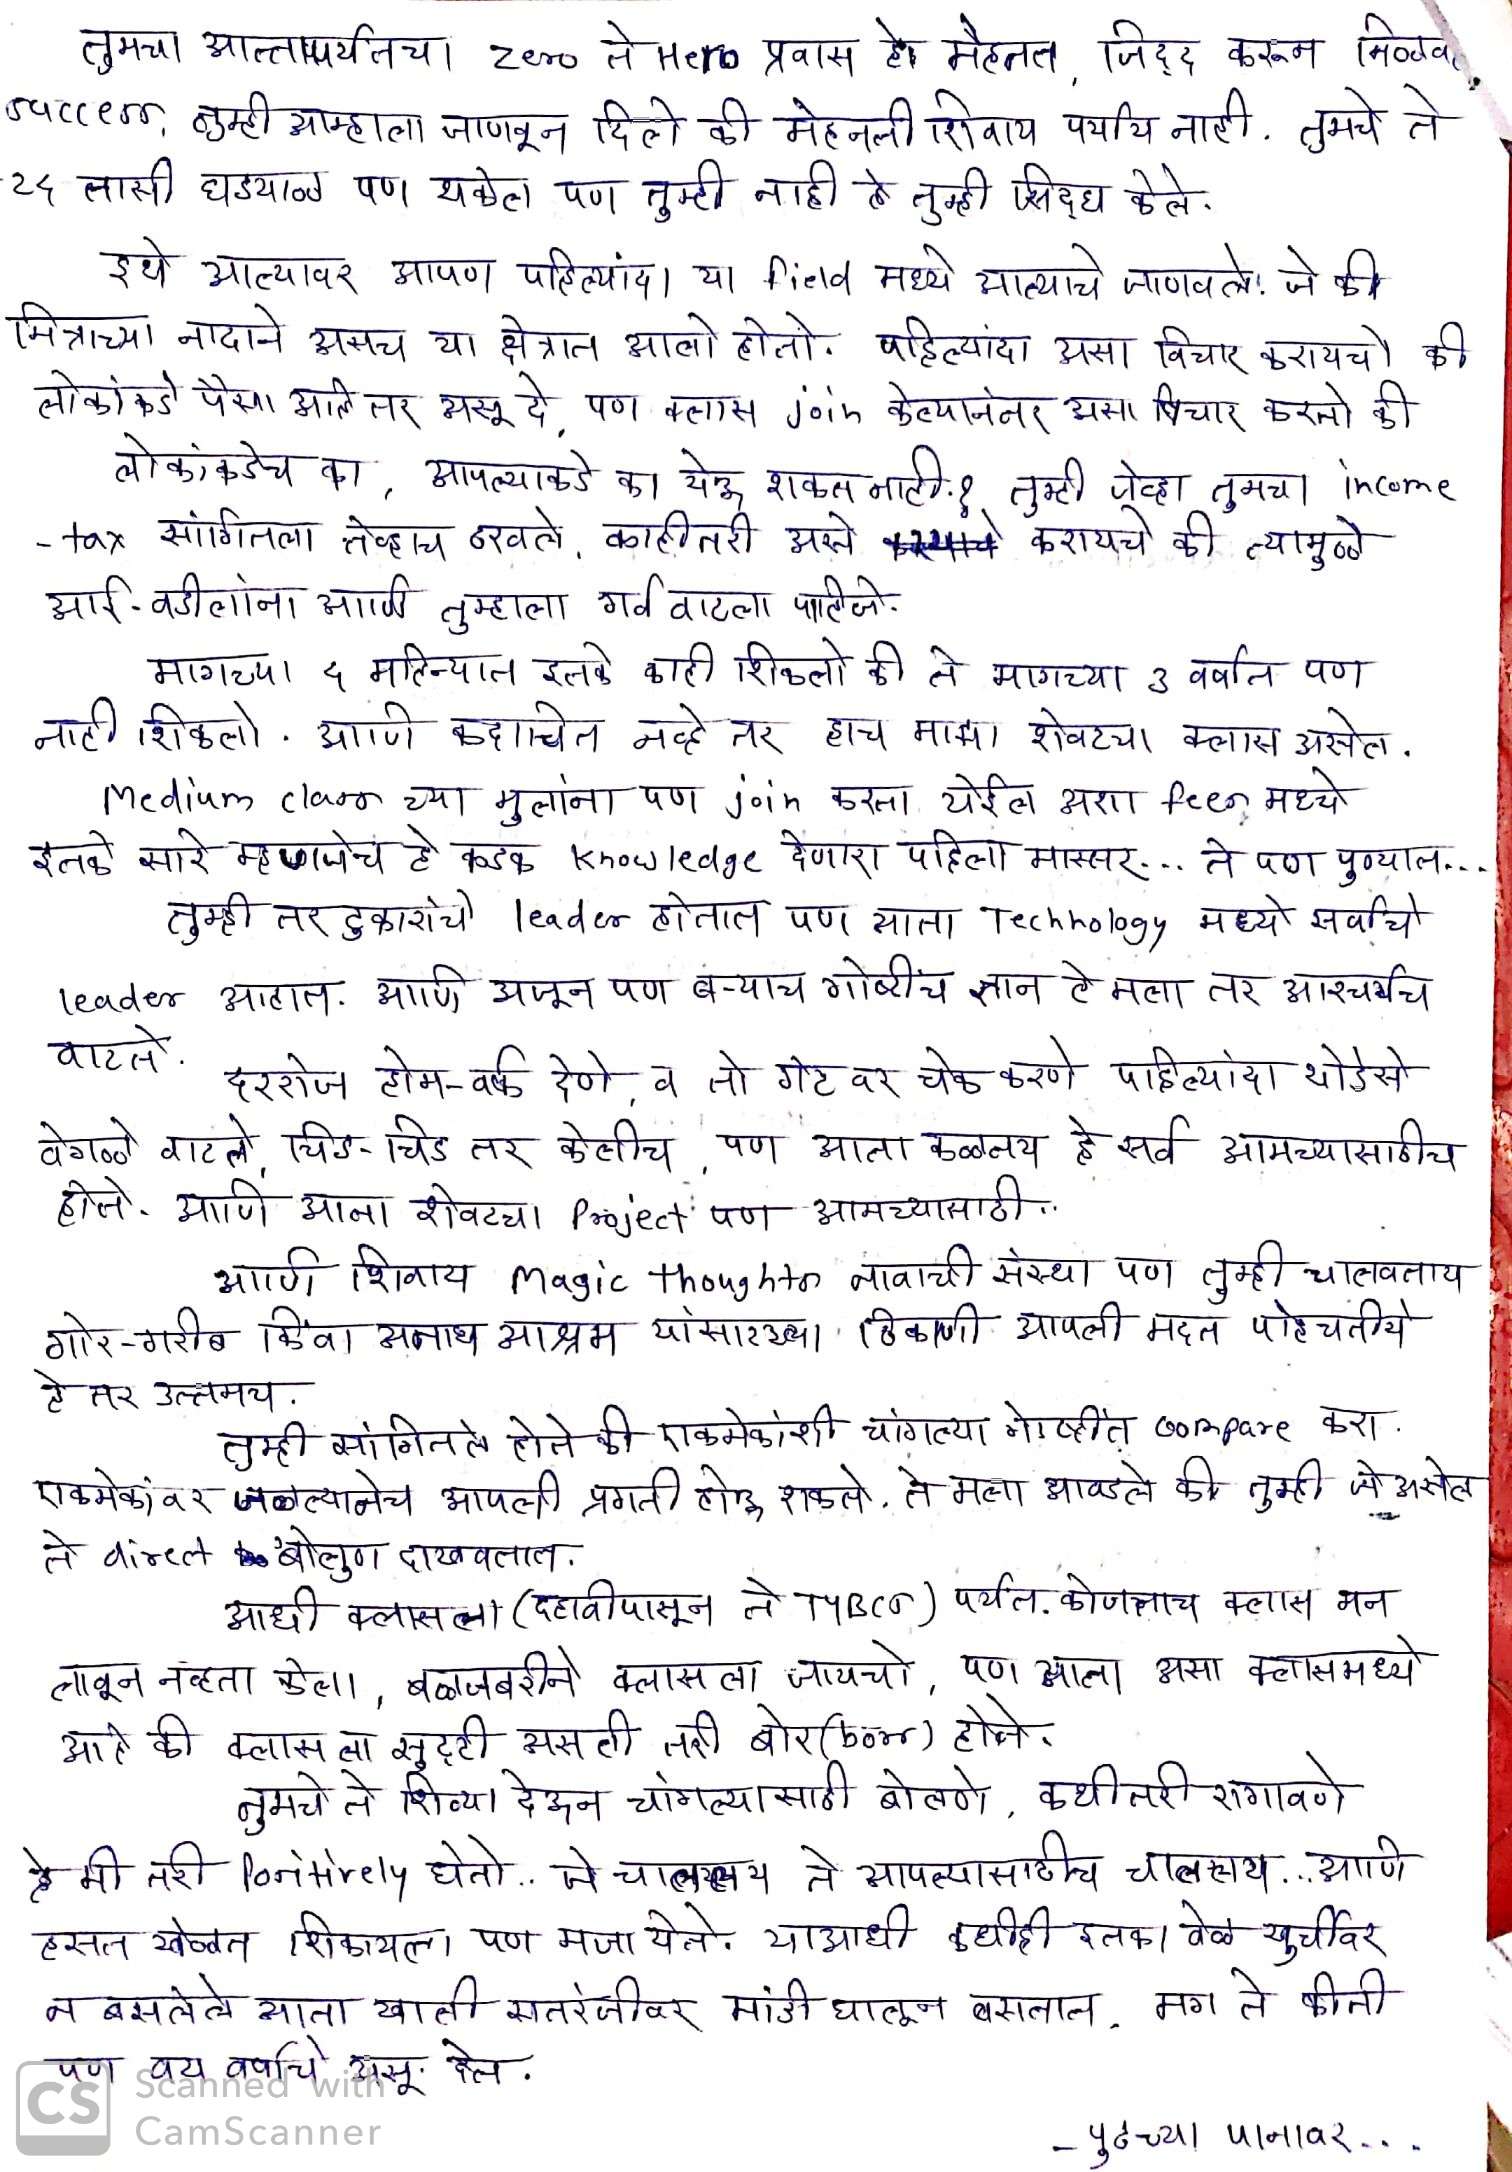 तुमचा आत्तापर्यंतचा zero ते Hero प्रवास हा मेहनत, जिद्द करून मिळवल
success, तुम्ही आम्हाला जाणवून दिले की मेहनती शिवाय पर्याय नाही. तुमचे ते
२६ तासी घड्याळ पण थकेल पण तुम्ही नाही हे तुम्ही सिद्ध केले.
इथे आल्यावर आपण पहिल्यांदा या field मध्ये आल्याचे जाणवले. जे की
मित्राच्या नादाने असच या क्षेत्रात आलो होतो. पहिल्यांदा असा विचार करायचो की
लोकांकडे पैसा आहे तर असू दे, पण क्लास join केल्यानंतर असा विचार करतो की
लोकांकडेच का, आपल्याकडे का येऊ शकत नाही.? तुम्ही जेव्हा तुमचा income
-tax सांगितला तेव्हाच ठरवले, काहीतरी असे करायचे की त्यामुळे
आई-वडीलांना आणि तुम्हाला गर्व वाटला पाहीजे.
मागच्या ५ महिन्यात इतके काही शिकलो की ते मागच्या 3 वर्षात पण
नाही शिकलो. आणि कदाचित नव्हे तर हाच माझा शेवटचा क्लास असेल.
Medium class च्या मुलांना पण join करता येईल अशा fees मध्ये
इतके सारे म्हणजेच हे कडक knowledge देणारा पहिला मास्तर... ते पण पुण्यात...
तुम्ही तर टुकारांचे leader होतात पण आता Technology मध्ये सर्वांचे
leader आहात. आणि अजून पण बऱ्याच गोष्टींच ज्ञान हे मला तर आश्चर्यच
वाटले.
दररोज होम-वर्क देणे, व तो गेट वर चेक करणे पहिल्यांदा थोडेसे
वेगळे वाटले, चिड-चिड तर केलीच, पण आता कळतय हे सर्व आमच्यासाठीच
होते. आणि आता शेवटचा Project पण आमच्यासाठी..
आणि शिवाय Magic thoughts नावाची संस्था पण तुम्ही चालवताय
गोर-गरीब किंवा अनाथ आश्रम यांसारख्या ठिकाणी आपली मदत पोहचतीये
हे तर उत्तमच.
तुम्ही सांगितले होते की एकमेकांशी चांगल्या गोष्टींत compare करा.
एकमेकांवर जळल्यानेच आपली प्रगती होऊ शकते. ते मला आवडले की तुम्ही जे असेल
ते direct बोलुण दाखवतात.
आधी क्लासला (दहावीपासून ते TYBCS) पर्यंत. कोणताच क्लास मन
लावून नव्हता केला, बळजबरीने क्लास ला जायचो, पण आता असा क्लासमध्ये
आहे की क्लास ला सुट्टी असली तरी बोर (borr) होते.
तुमचे ते शिव्या देऊन चांगल्यासाठी बोलणे, कधीतरी रागावणे
हे मी तरी Positively घेतो.. जे चाललय ते आपल्यासाठीच चाललय... आणि
हसत खेळत शिकायला पण मजा येते. याआधी कधीही इतका वेळ खुर्चीवर
न बसलेले आता खाली सतरंजीवर मांडी घालून बसतात, मग ते कीती
पण वय वर्षाचे असू देत.
- पुढच्या पानावर...
CS Scanned with
CamScanner